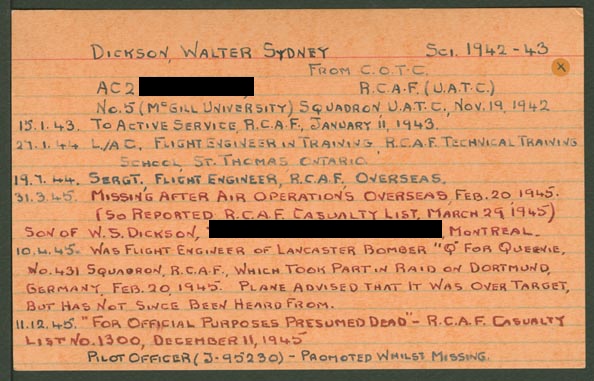 DICKSON, WALTER SYDNEY SCI. 1942-43
FROM C.O.T.C.
AC2 R.C.A.F. (U.A.T.C.)
NO. 5 (MCGILL UNIVERSITY) SQUADRON U.A.T.C., NOV. 19, 1942
15.1.43. TO ACTIVE SERVICE, R.C.A.F., JANUARY 11, 1943.
27.1.44 L/AC, FLIGHT ENGINEER IN TRAINING, R.C.A.F. TECHNICAL TRAINING
SCHOOL, ST. THOMAS ONTARIO.
19.7.44. SERGT, FLIGHT ENGINEER, R.C.A.F. OVERSEAS.
31.3.45. MISSING AFTER AIR OPERATIONS OVERSEAS, FEB. 20, 1945.
(SO REPORTED R.C.A.F. CASUALTY LIST, MARCH 29, 1945)
SON OF W.S. DICKSON, MONTREAL.
10.4.45. WAS FLIGHT ENGINEER OF LANCASTER BOMBER "Q" FOR QUEENIE,
NO. 431 SQUADRON, R.C.A.F., WHICH TOOK PART IN RAID ON DORTMUND,
GERMANY, FEB. 20, 1945. PLANE ADVISED THAT IT WAS OVER TARGET,
BUT HAS NOT SINCE BEEN HEARD FROM.
11.12.45. "FOR OFFICIAL PURPOSES PRESUMED DEAD" - R.C.A.F. CASUALTY
LIST NO. 1300, DECEMBER 11, 1945
PILOT OFFICER (J-95230) - PROMOTED WHILST MISSING.